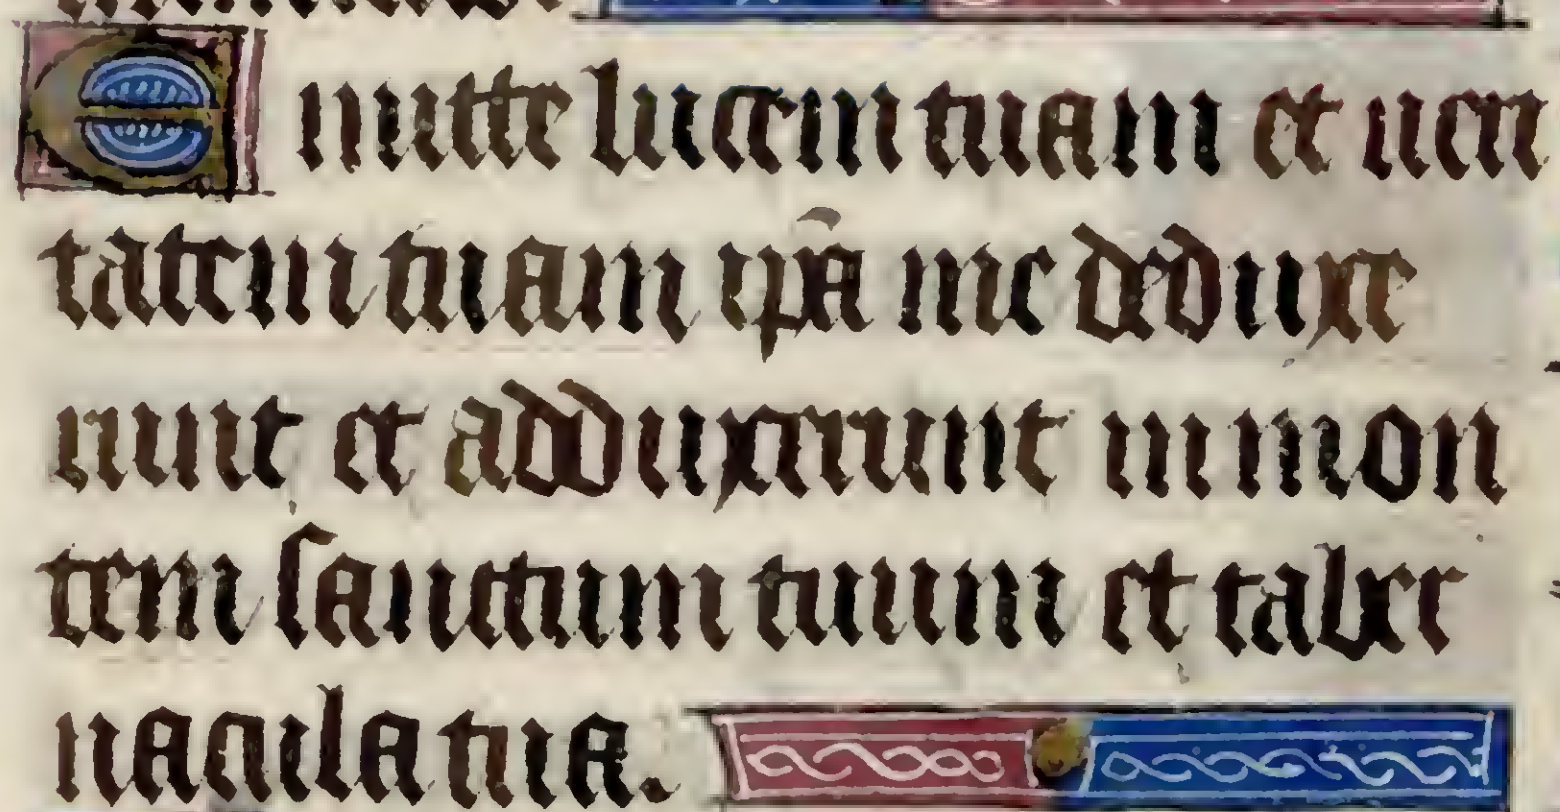 Emitte lucem tuam et ueri
tatem tuam ip̄a me deduxe
runt et adduxerunt in mon
tem sanctum tuum et taber
nacula tua.